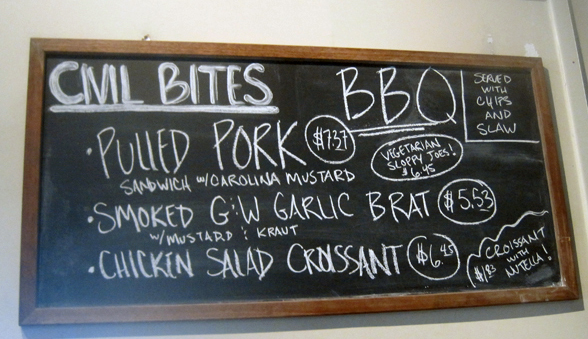 CIVIL BITES
BBQ
SERVED
WITH
CHIPS
AND
SLAW
• PULLED PORK $7.37
SANDWICH W/CAROLINA MUSTARD
VEGETARIAN
SLOPPY JOES!
$6.45
• SMOKED G&W GARLIC BRAT $5.53
W/MUSTARD & KRAUT
• CHICKEN SALAD CROISSANT $6.45
CROISSANT
WITH
NUTELLA!
$1.83